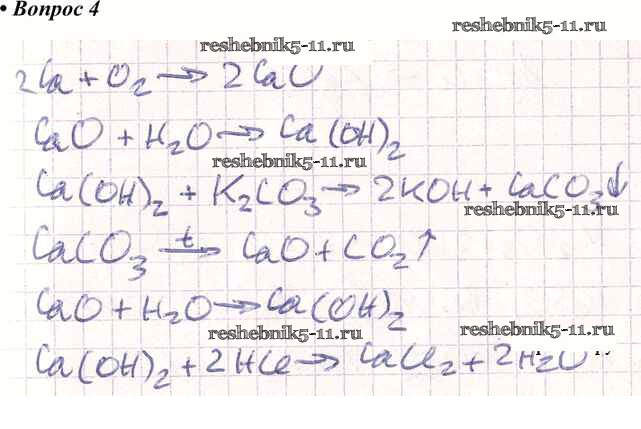 • Вопрос 4
reshebnik5-11.ru
reshebnik5-11.ru
2Ca + O₂ → 2CaO
CaO + H₂O → Ca(OH)₂
reshebnik5-11.ru
Ca(OH)₂ + K₂CO₃ → 2KOH + CaCO₃↓
reshebnik5-11.ru
CaCO₃ t→ CaO + CO₂↑
CaO + H₂O → Ca(OH)₂
reshebnik5-11.ru
reshebnik5-11.ru
Ca(OH)₂ + 2HCl → CaCl₂ + 2H₂O